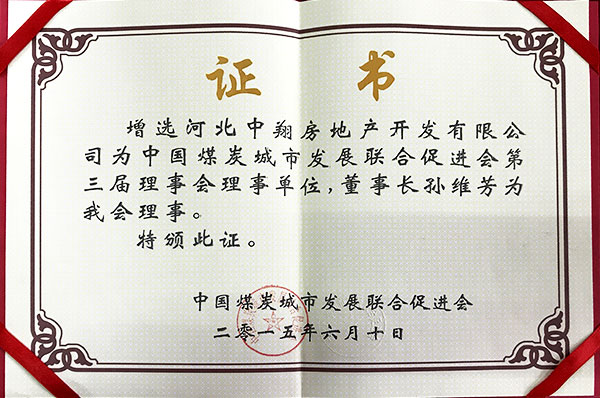 证 书
增选河北中翔房地产开发有限公
司为中国煤炭城市发展联合促进会第
三届理事会理事单位,董事长孙维芳为
我会理事。
特颁此证。
中国煤炭城市发展联合促进会
二零一五年六月十日